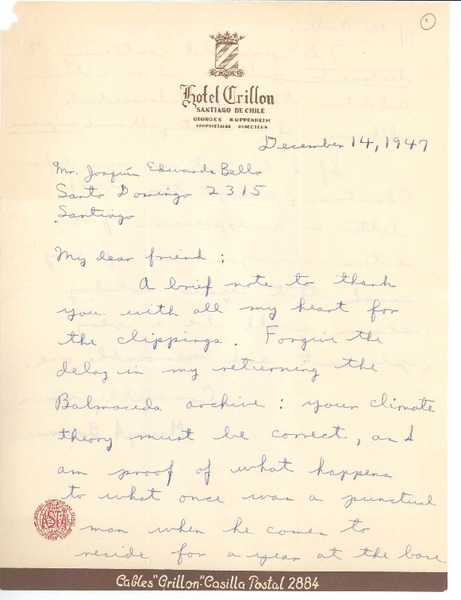 1
Hotel Crillon
SANTIAGO DE CHILE
GEORGES KUPPENHEIM
PROPRIETAIRE DIRECTEUR
December 14, 1947
Mr. Joaquín Edwards Bello
Santo Domingo 2315
Santiago
My dear friend:
A brief note to thank
you with all my heart for
the clippings. Forgive the
delay in my returning the
Balmaceda archive: your climate
theory must be correct, and I
am proof of what happens
to what once was a punctual
man when he comes to
reside for a year at the base
ASTA
Cables "Crillon"-Casilla Postal 2884